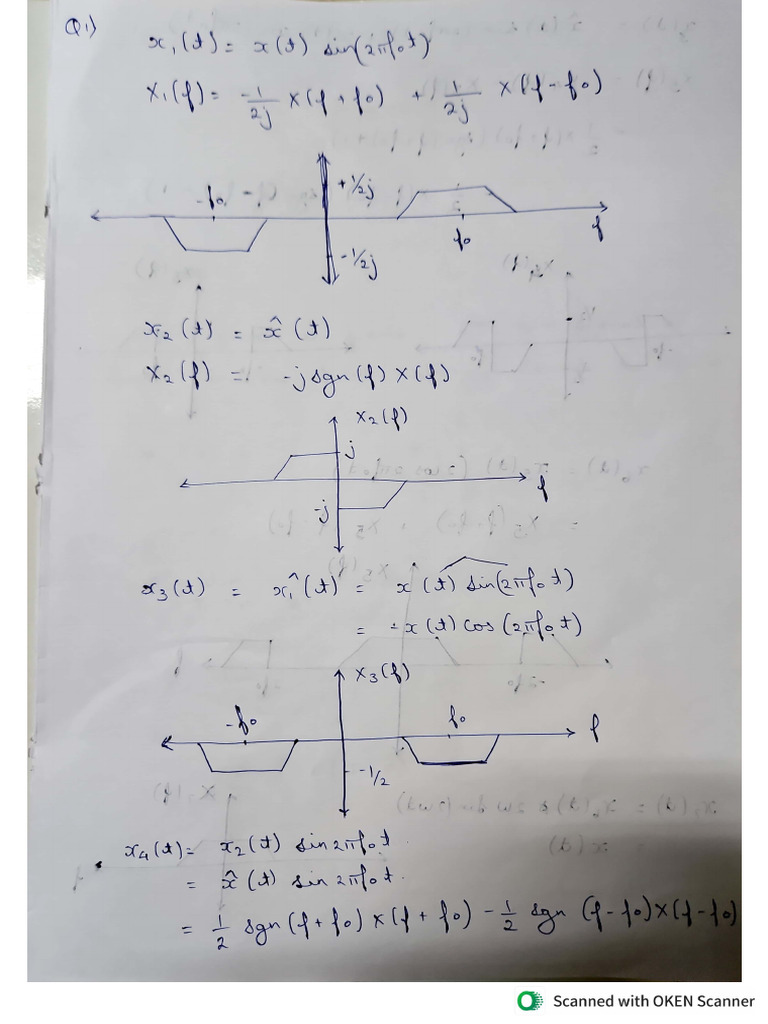 Q1)
x₁(t) = x(t) sin(2πf₀t)
X₁(f) = -1/2j X(f + f₀) + 1/2j X(f - f₀)
+1/2j
-f₀
f₀
f
-1/2j
x₂(t) = x̂(t)
X₂(f) = -j sgn(f) X(f)
X₂(f)
j
f
-j
x₃(t) = x₁^(t) = x(t) sin(2πf₀t)
= -x(t) cos(2πf₀t)
X₃(f)
-f₀
f₀
f
-1/2
x₄(t) = x₂(t) sin2πf₀t
= x̂(t) sin2πf₀t.
= 1/2 sgn(f + f₀) X(f + f₀) - 1/2 sgn (f - f₀) X(f - f₀)
Scanned with OKEN Scanner